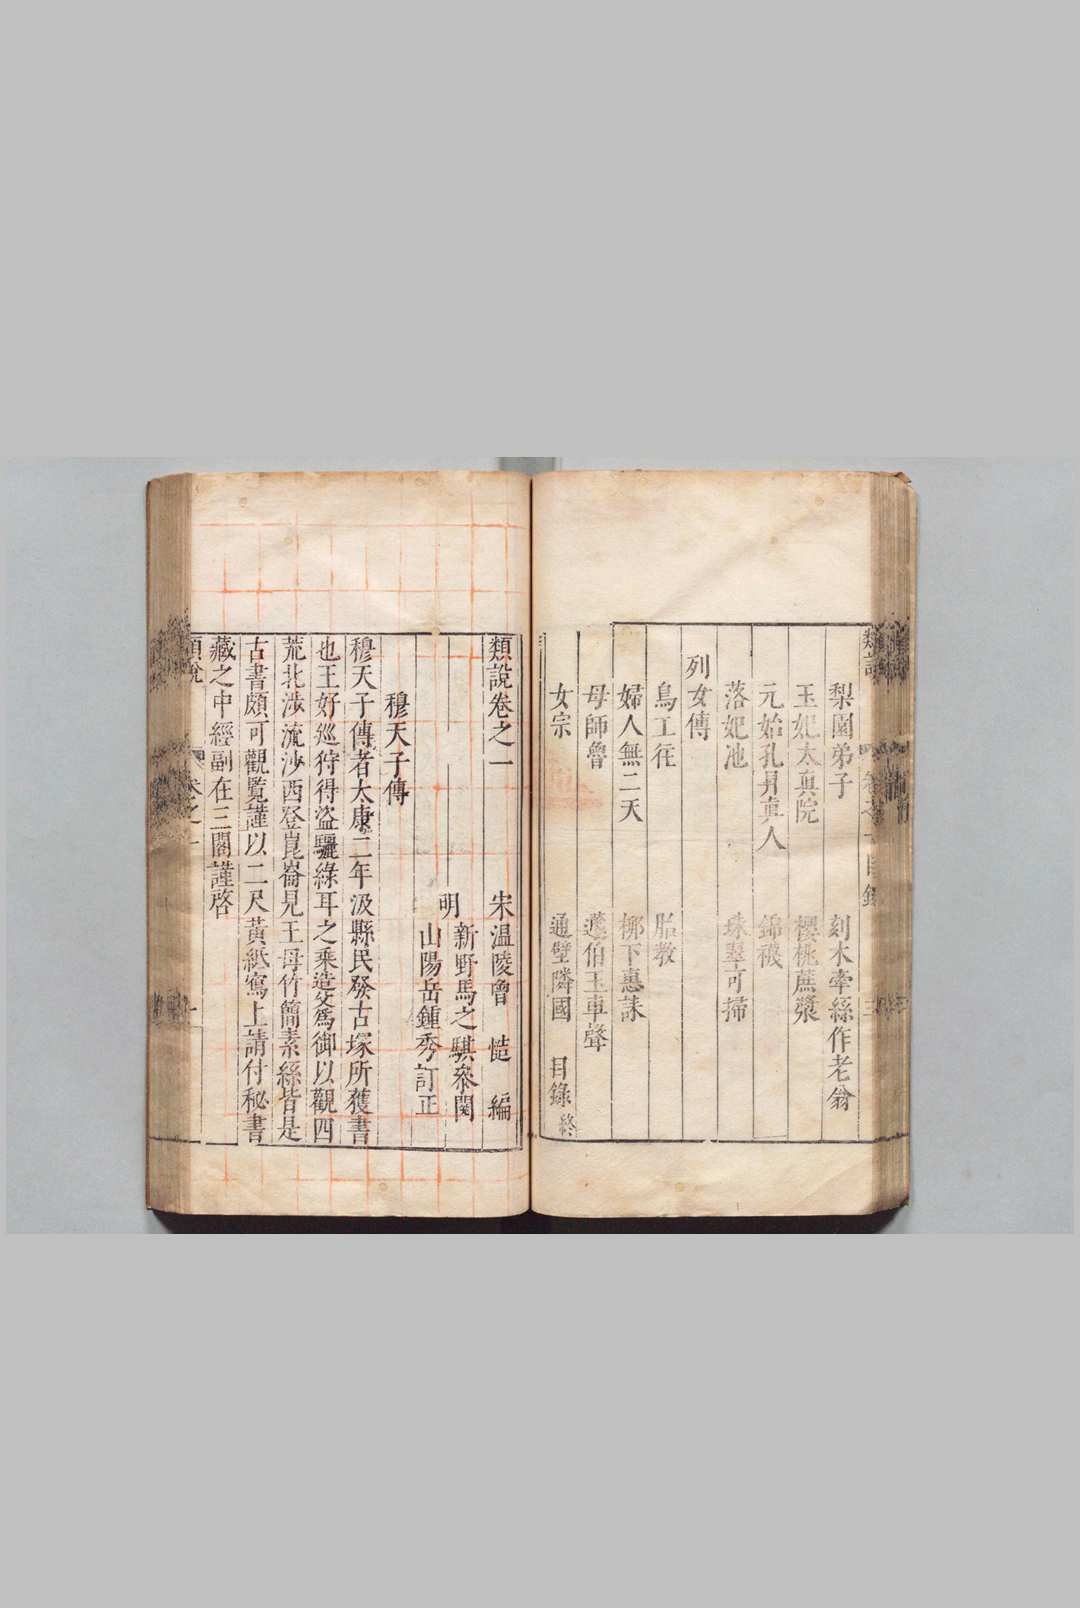 梨園弟子 刻木牽絲作老翁
玉妃太真院 櫻桃蔗漿
元始孔昇真人 錦襪
落妃池 珠翠可掃
列女傳
鳥工往 胎教
婦人無二天 柳下惠誄
母師魯 蘧伯玉車聲
女宗 通壁隣國 目錄終
類說卷之一
宋温陵曾 慥 編
明
新野馬之騏叅閱
山陽岳鍾秀訂正
穆天子傳
穆天子傳者太康二年汲縣民發古塚所獲書
也王好巡狩得盜驪綠耳之乘造父爲御以觀四
荒北涉流沙西登崑崙見王母竹簡素絲皆是
古書頗可觀覽謹以二尺黃紙寫上請付秘書
藏之中經副在三閣謹啓